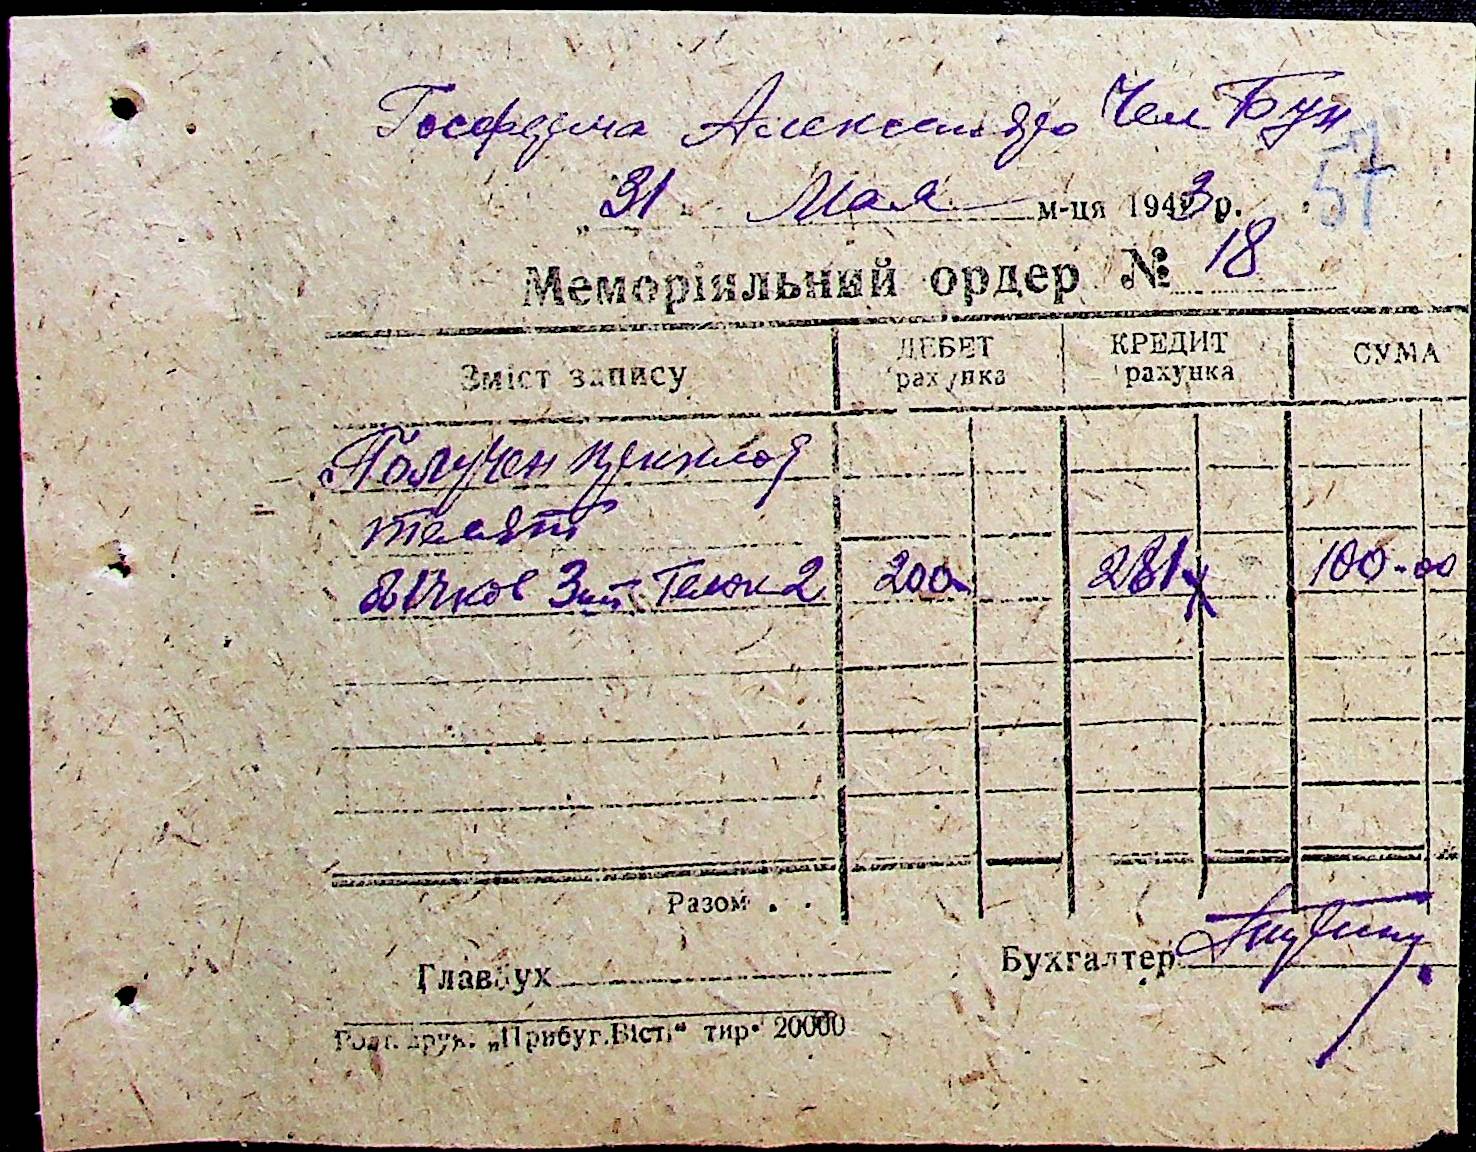 Госферма Александро Чем Бун
57
„ 31 " Мая м-ця 1943 р.
Меморіяльний ордер № 18
Зміст запису
ДЕБЕТ рахунка
КРЕДИТ рахунка
СУМА
Получен приплод
телят
бычков 3 шт. Телок 2 200 281 100-00
Разом . .
Главбух
Бухгалтер
друк. „Прибуг.Вісті“ тир. 20000